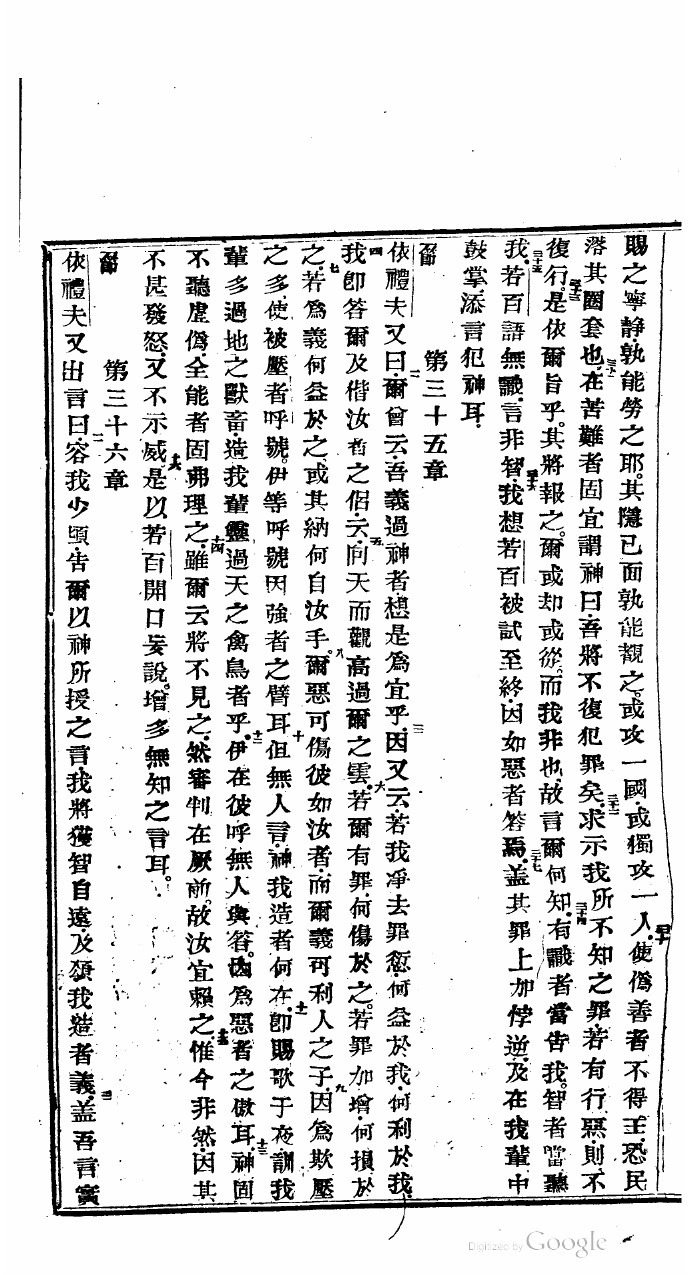 賜之寧靜孰能勞之耶其隱已面孰能觀之或攻一國或獨攻一人三十使偽善者不得王恐民
溶其圈套也三十一在苦難者固宜謂神曰吾將不復犯罪矣三十二求示我所不知之罪若有行惡則不
復行三十三是依爾旨乎其將報之爾或却或從而我非也故言爾何知三十四有識者當告我智者當聽
我三十五若百語無識言非智三十六我想若百被試至終因如惡者答焉三十七蓋其罪上加悖逆及在我輩中
鼓掌添言犯神耳
第三十五章
依禮夫又曰二爾曾云吾義過神者想是為宜乎三因又云若我淨去罪愆何益於我何利於我
四我卽答爾及偕汝者之侶云五向天而觀高過爾之雲六若爾有罪何傷於之若罪加增何損於
之七若為義何益於之或其納何自汝手八爾惡可傷彼如汝者而爾義可利人之子九因為欺壓
之多使被壓者呼號伊等呼號因強者之臂耳十但無人言神我造者何在卽賜歌于夜十一訓我
輩多過地之獸畜造我輩靈過天之禽鳥者乎十二伊在彼呼無人與答因為惡者之傲耳十三神固
不聽虛偽全能者固弗理之十四雖爾云將不見之然審判在厥前故汝宜賴之十五惟今非然因其
不甚發怒又不示威十六是以若百開口妄說增多無知之言耳
第三十六章
依禮夫又出言曰二容我少頃告爾以神所授之言三我將獲智自遠及頌我造者義四蓋吾言實
Digitized by Google